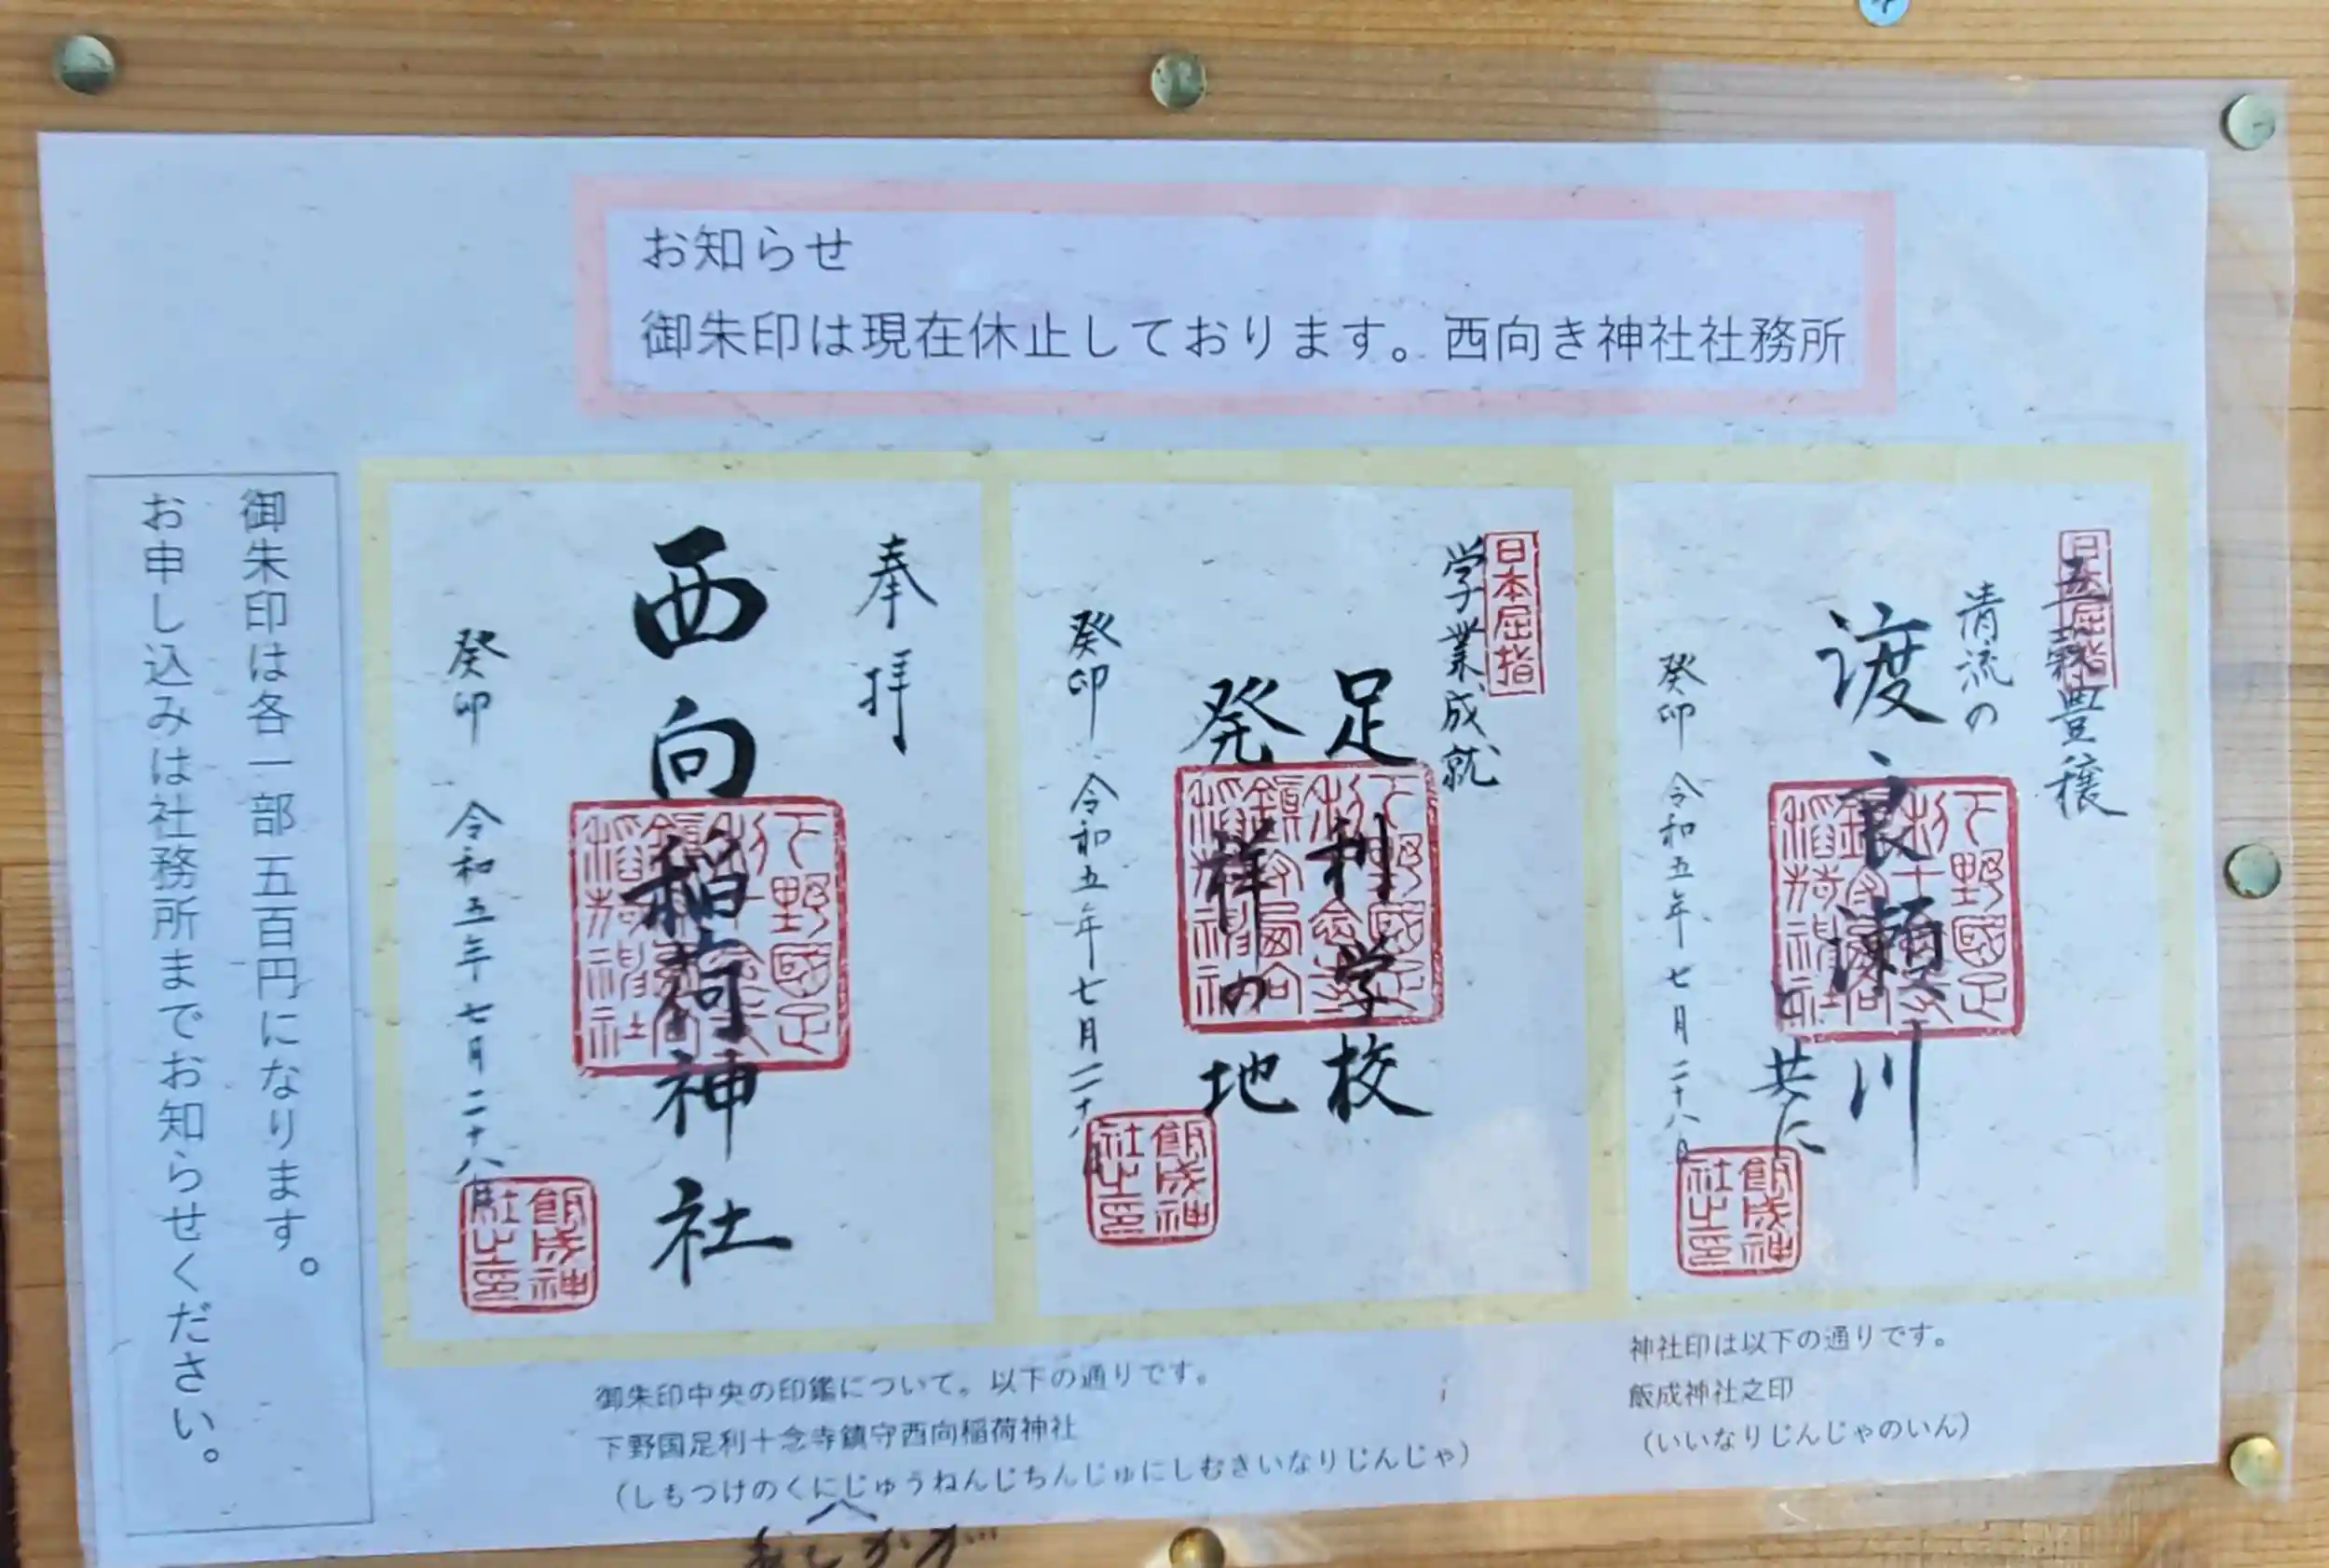 お知らせ
御朱印は現在休止しております。西向き神社社務所
五穀豊穣
日本屈指
清流の
渡良瀬川
と共に
癸卯 令和五年七月二十八日
下野國足利十念寺鎮守西向稲荷神社
飯成神社之印
日本屈指
学業成就
足利学校
発祥の地
癸卯 令和五年七月二十八日
下野國足利十念寺鎮守西向稲荷神社
飯成神社之印
奉拝
西向稲荷神社
癸卯 令和五年七月二十八日
下野國足利十念寺鎮守西向稲荷神社
飯成神社之印
御朱印は各一部 五百円になります。
お申し込みは社務所までお知らせください。
御朱印中央の印鑑について。以下の通りです。
下野国足利十念寺鎮守西向稲荷神社
（しもつけのくにじゅうねんじちんじゅにしむきいなりじんじゃ）
神社印は以下の通りです。
飯成神社之印
（いいなりじんじゃのいん）